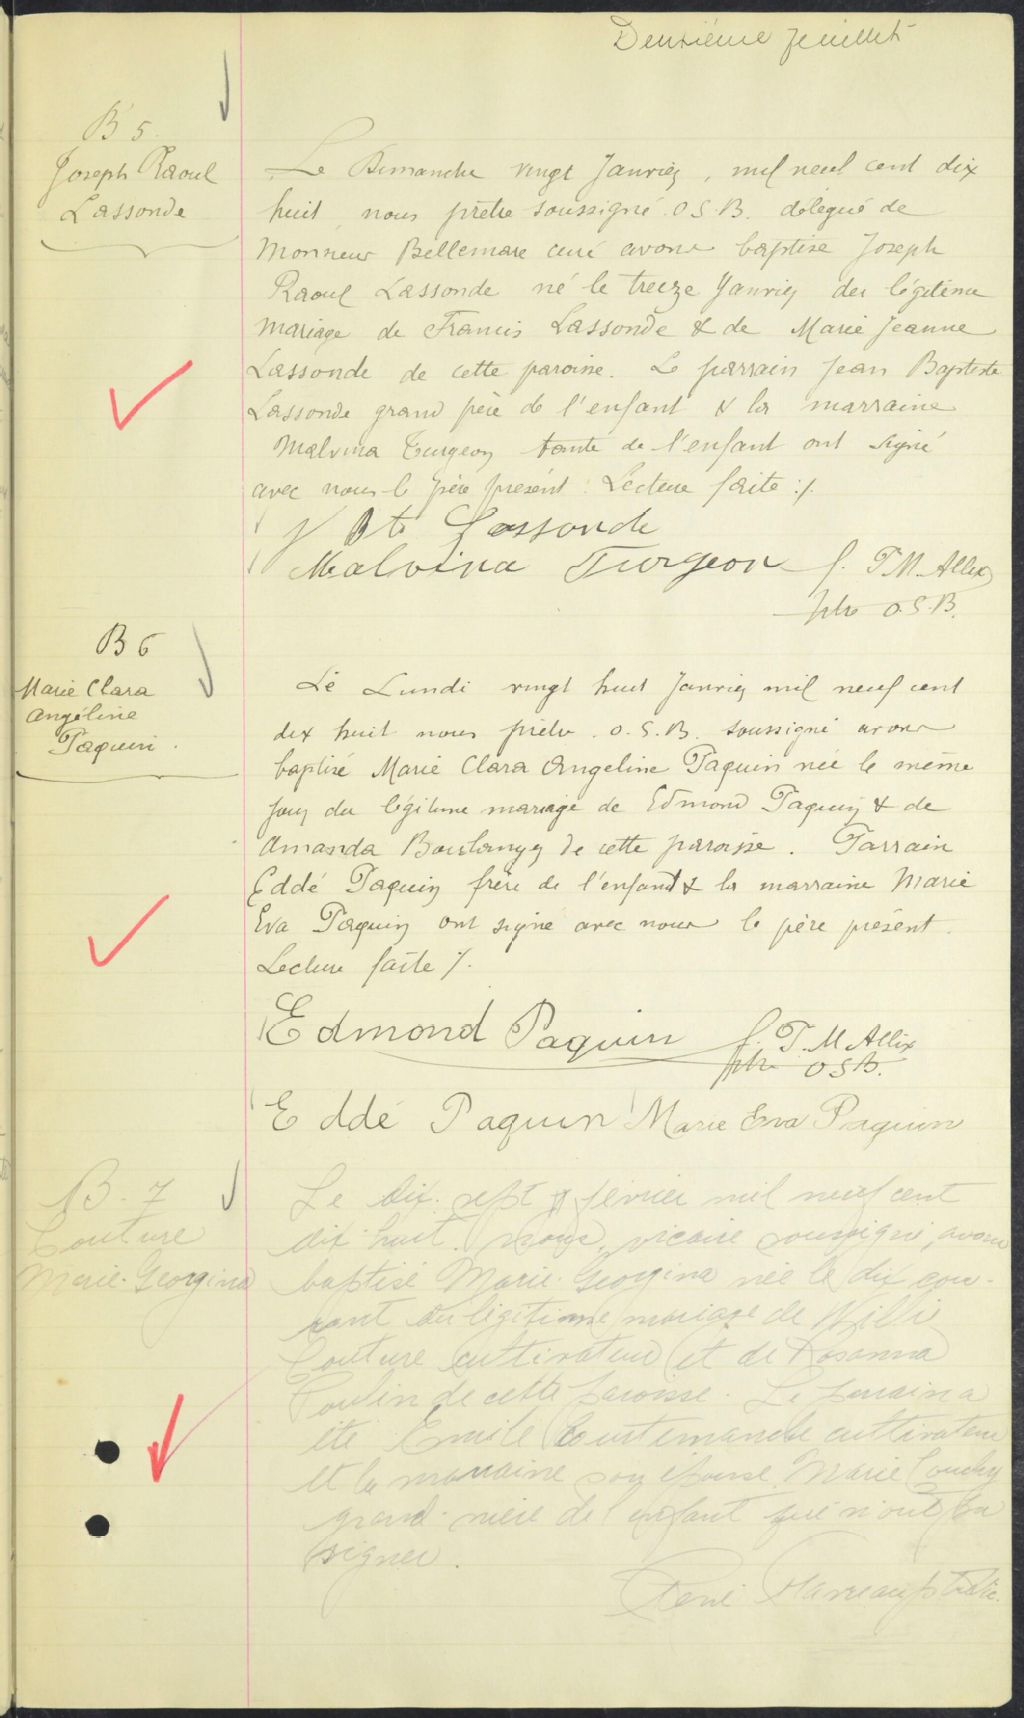 Deuxième feuillet
B 5.
Joseph Raoul
Lassonde
Le Dimanche vingt Janvier, mil neuf cent dix
huit nous prêtre soussigné O.S.B. délégué de
Monsieur Bellemare curé avons baptisé Joseph
Raoul Lassonde né le treize Janvier du légitime
mariage de Francis Lassonde & de Marie Jeanne
Lassonde de cette paroisse. Le parrain Jean Baptiste
Lassonde grand père de l'enfant & la marraine
Malvina Turgeon tante de l'enfant ont signé
avec nous le père présent. Lecture faite ./.
J Bte Lassonde
Malvina Turgeon f. T.M. Allix
ptre O.S.B.
B 6
Marie Clara
Angéline
Paquin.
Le Lundi vingt huit Janvier mil neuf cent
dix huit nous prêtre O.S.B. soussigné avons
baptisé Marie Clara Angeline Paquin née le même
jour du légitime mariage de Edmond Paquin & de
Amanda Boulanger de cette paroisse. Parrain
Eddé Paquin frère de l'enfant & la marraine Marie
Eva Paquin ont signé avec nous le père présent.
Lecture faite ./.
Edmond Paquin f. T.M Allix
ptre OSB.
Eddé Paquin Marie Eva Paquin
B. 7
Couture
Marie-Georgina
Le dix-sept février mil neuf cent
dix huit. nous, vicaire soussigné, avons
baptisé Marie-Georgina née le dix cou-
rant du légitime mariage de Willie
Couture cultivateur et de Rosanna
Poulin de cette paroisse. Le parrain a
été Emile Courtemanche cultivateur
et la marraine son épouse Marie
grand-mère de l'enfant qui n'ont su
signer.
René ptre vic.